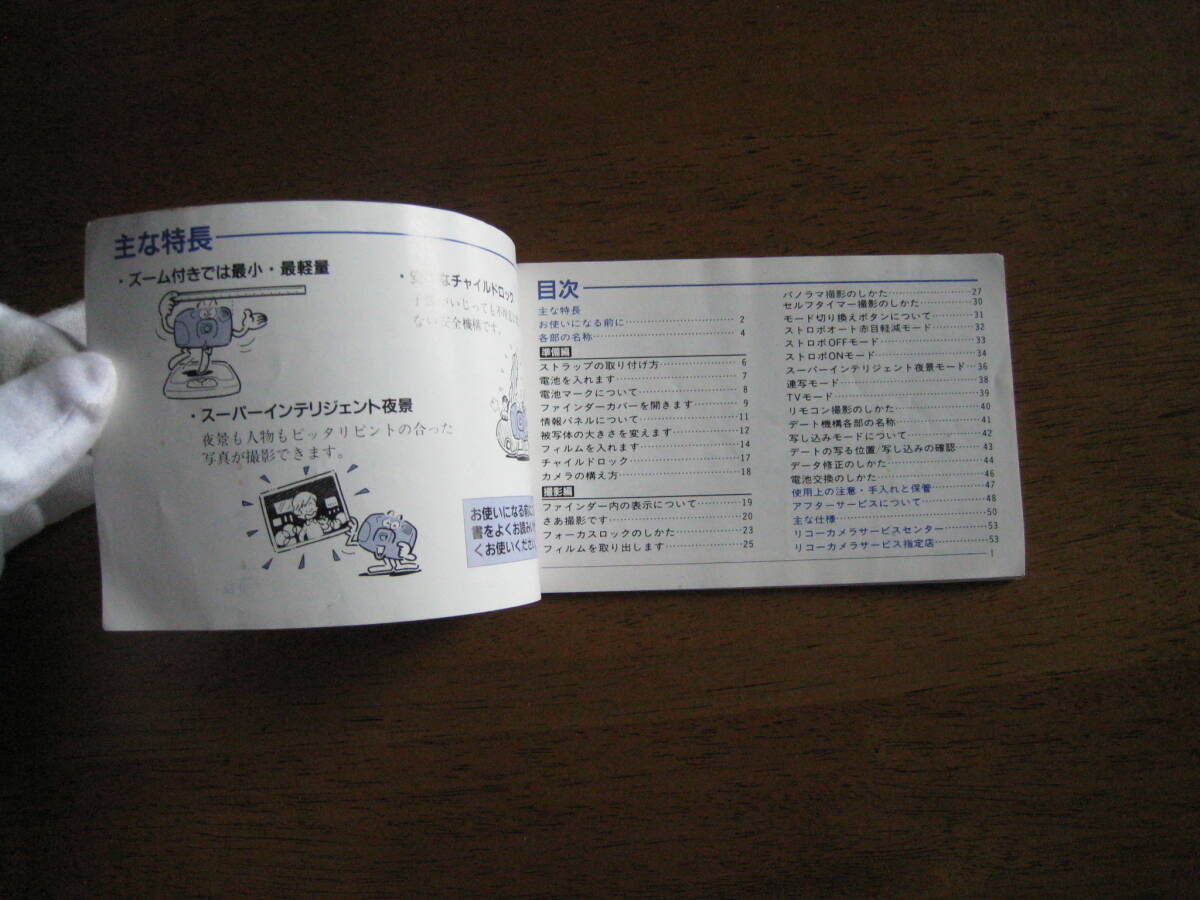 主な特長
・ズーム付きでは最小・最軽量
なチャイルドロック
いじっても
ない安全機構です。
・スーパーインテリジェント夜景
夜景も人物もピッタリピントの合った
写真が撮影できます。
お使いになる前に
書をよくお読み
くお使いください
目次
主な特長
お使いになる前に 2
各部の名称 4
準備編
ストラップの取り付け方 6
電池を入れます 7
電池マークについて 8
ファインダーカバーを開きます 9
情報パネルについて 11
被写体の大きさを変えます 12
フィルムを入れます 14
チャイルドロック 17
カメラの構え方 18
撮影編
ファインダー内の表示について 19
さあ撮影です 20
フォーカスロックのしかた 23
フィルムを取り出します 25
パノラマ撮影のしかた 27
セルフタイマー撮影のしかた 30
モード切り換えボタンについて 31
ストロボオート赤目軽減モード 32
ストロボOFFモード 33
ストロボONモード 34
スーパーインテリジェント夜景モード 36
連写モード 38
TVモード 39
リモコン撮影のしかた 40
デート機構各部の名称 41
写し込みモードについて 42
デートの写る位置/写し込みの確認 43
データ修正のしかた 44
電池交換のしかた 46
使用上の注意・手入れと保管 47
アフターサービスについて 48
主な仕様 50
リコーカメラサービスセンター 53
リコーカメラサービス指定店 53
1